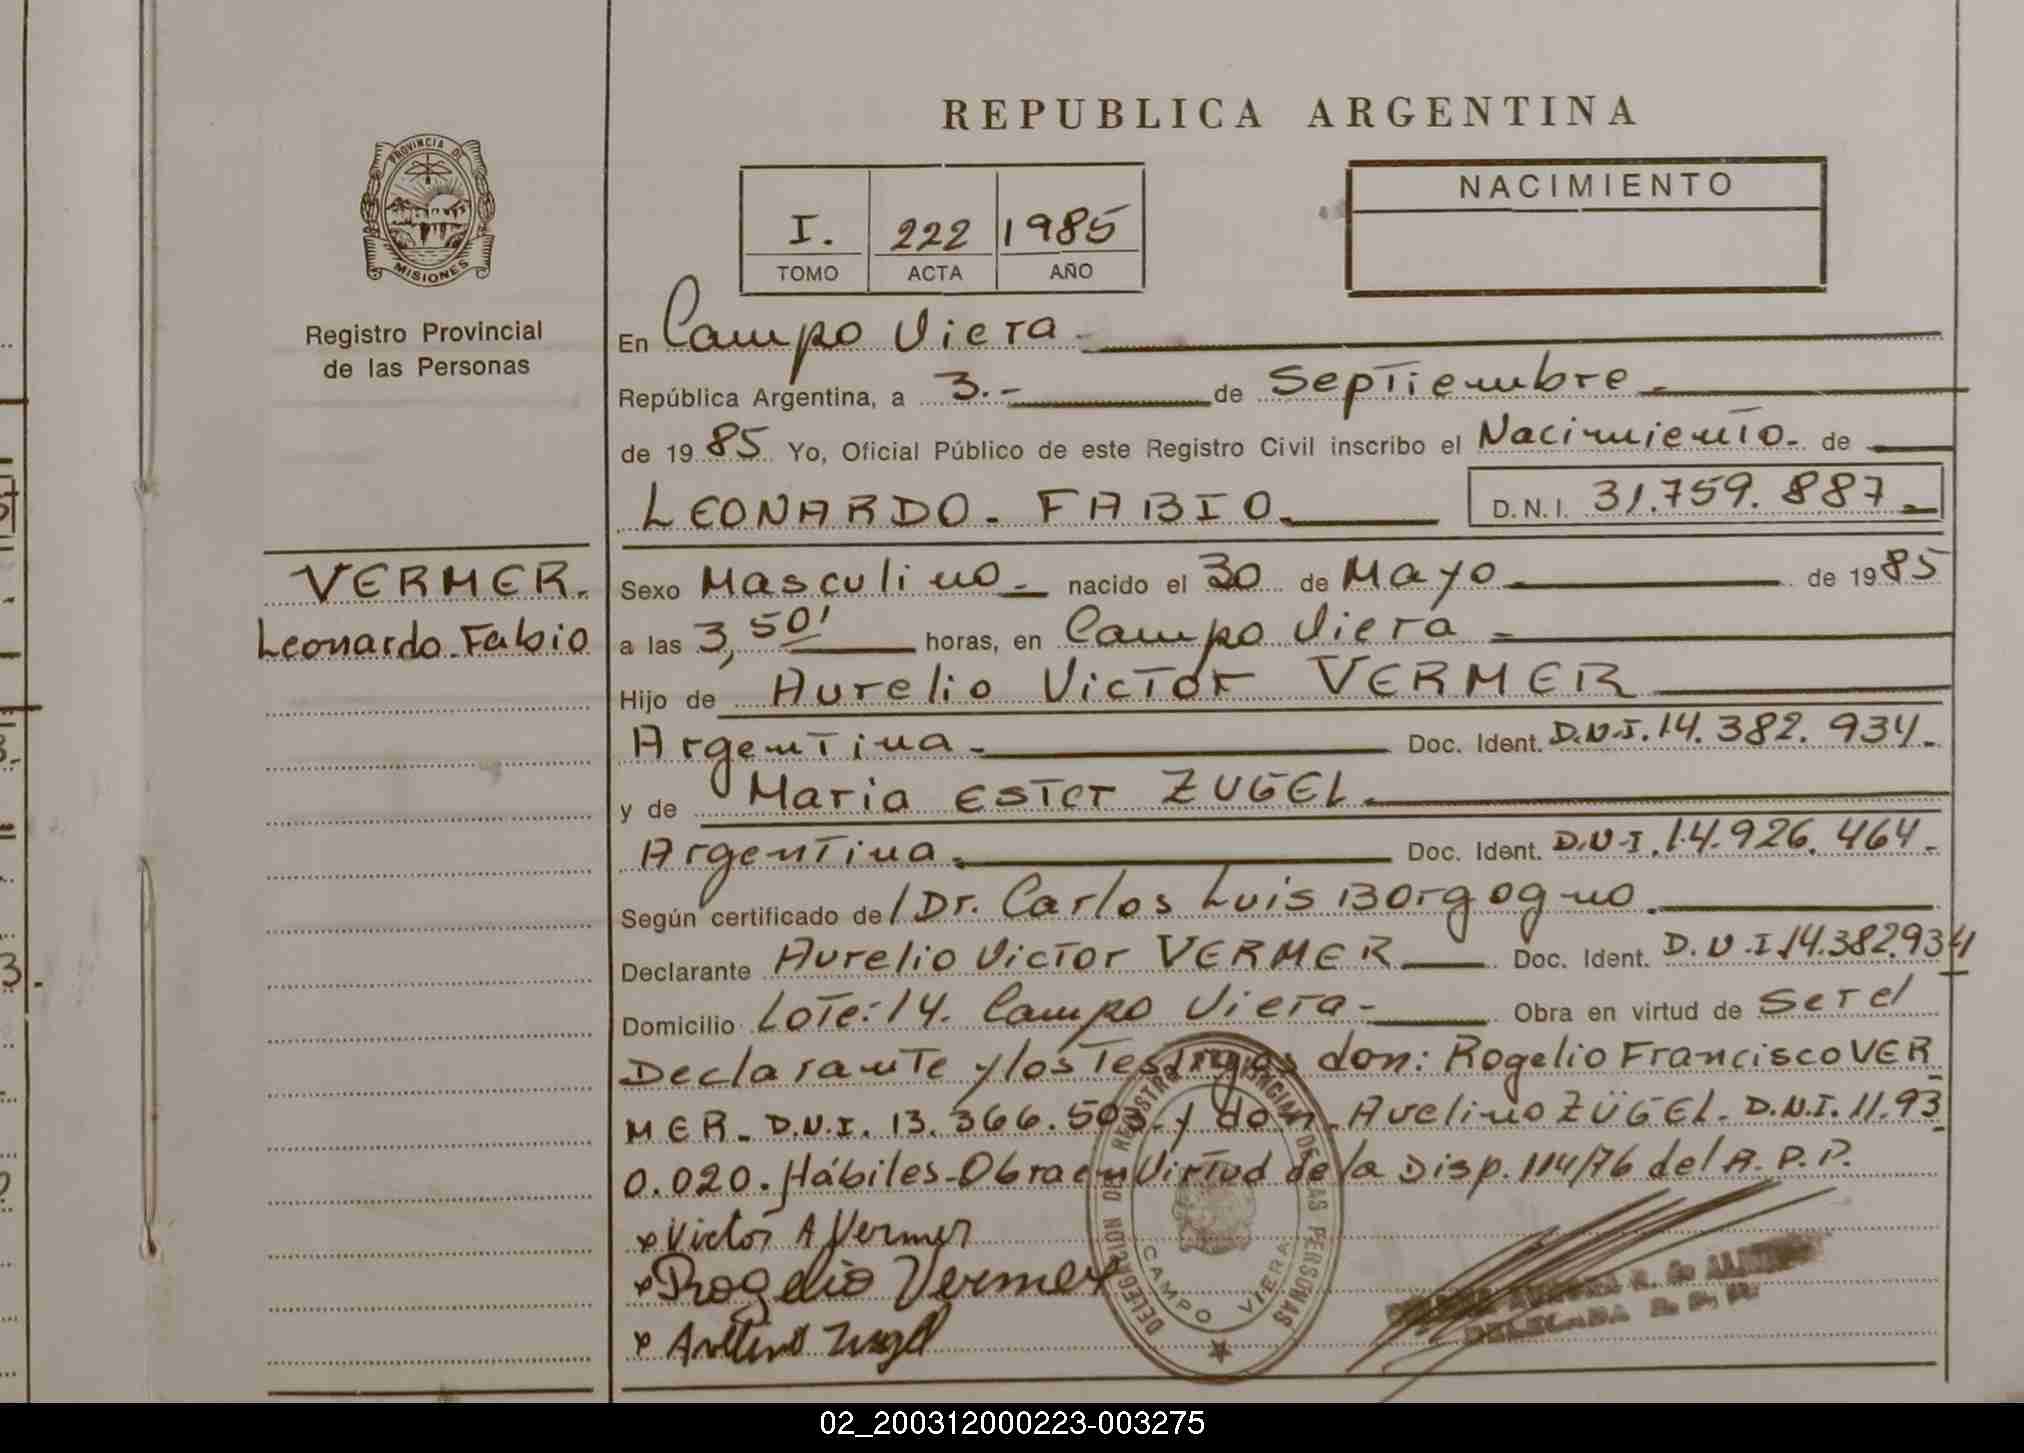 REPUBLICA ARGENTINA
PROVINCIA DE
MISIONES
Registro Provincial
de las Personas
I. 222 1985
TOMO ACTA AÑO
NACIMIENTO
En Campo Viera.
República Argentina, a 3.- de Septiembre.
de 1985 Yo, Oficial Público de este Registro Civil inscribo el Nacimiento. de
LEONARDO. FABIO. D.N.I. 31.759.887.
VERMER.
Leonardo. Fabio
Sexo Masculino. nacido el 30 de Mayo de 1985
a las 3,50' horas, en Campo Viera
Hijo de Aurelio Victor VERMER
Argentina. Doc. Ident. D.N.I. 14.382.934.
y de Maria Ester ZUGEL.
Argentina. Doc. Ident. D.N.I. 14.926.464.
Según certificado de/Dr. Carlos Luis Borgogno.
Declarante Aurelio Victor VERMER Doc. Ident. D.N.I 14.382.934
Domicilio Lote: 14. Campo Viera- Obra en virtud de Ser el
Declarante y los Testigos don: Rogelio Francisco VER
MER. D.N.I. 13.366.503. y don. Avelino ZÜGEL. D.N.I. 11.93
0.020. Hábiles-Obra en Virtud de la Disp. 114/76 del R.P.P.
x Victor A Vermer
x Rogelio Vermer
x Avelino Zugel
DELEGACION DEL REGISTRO PROVINCIAL DE LAS PERSONAS
CAMPO VIERA
DELEGADA R. P. P.
02_200312000223-003275